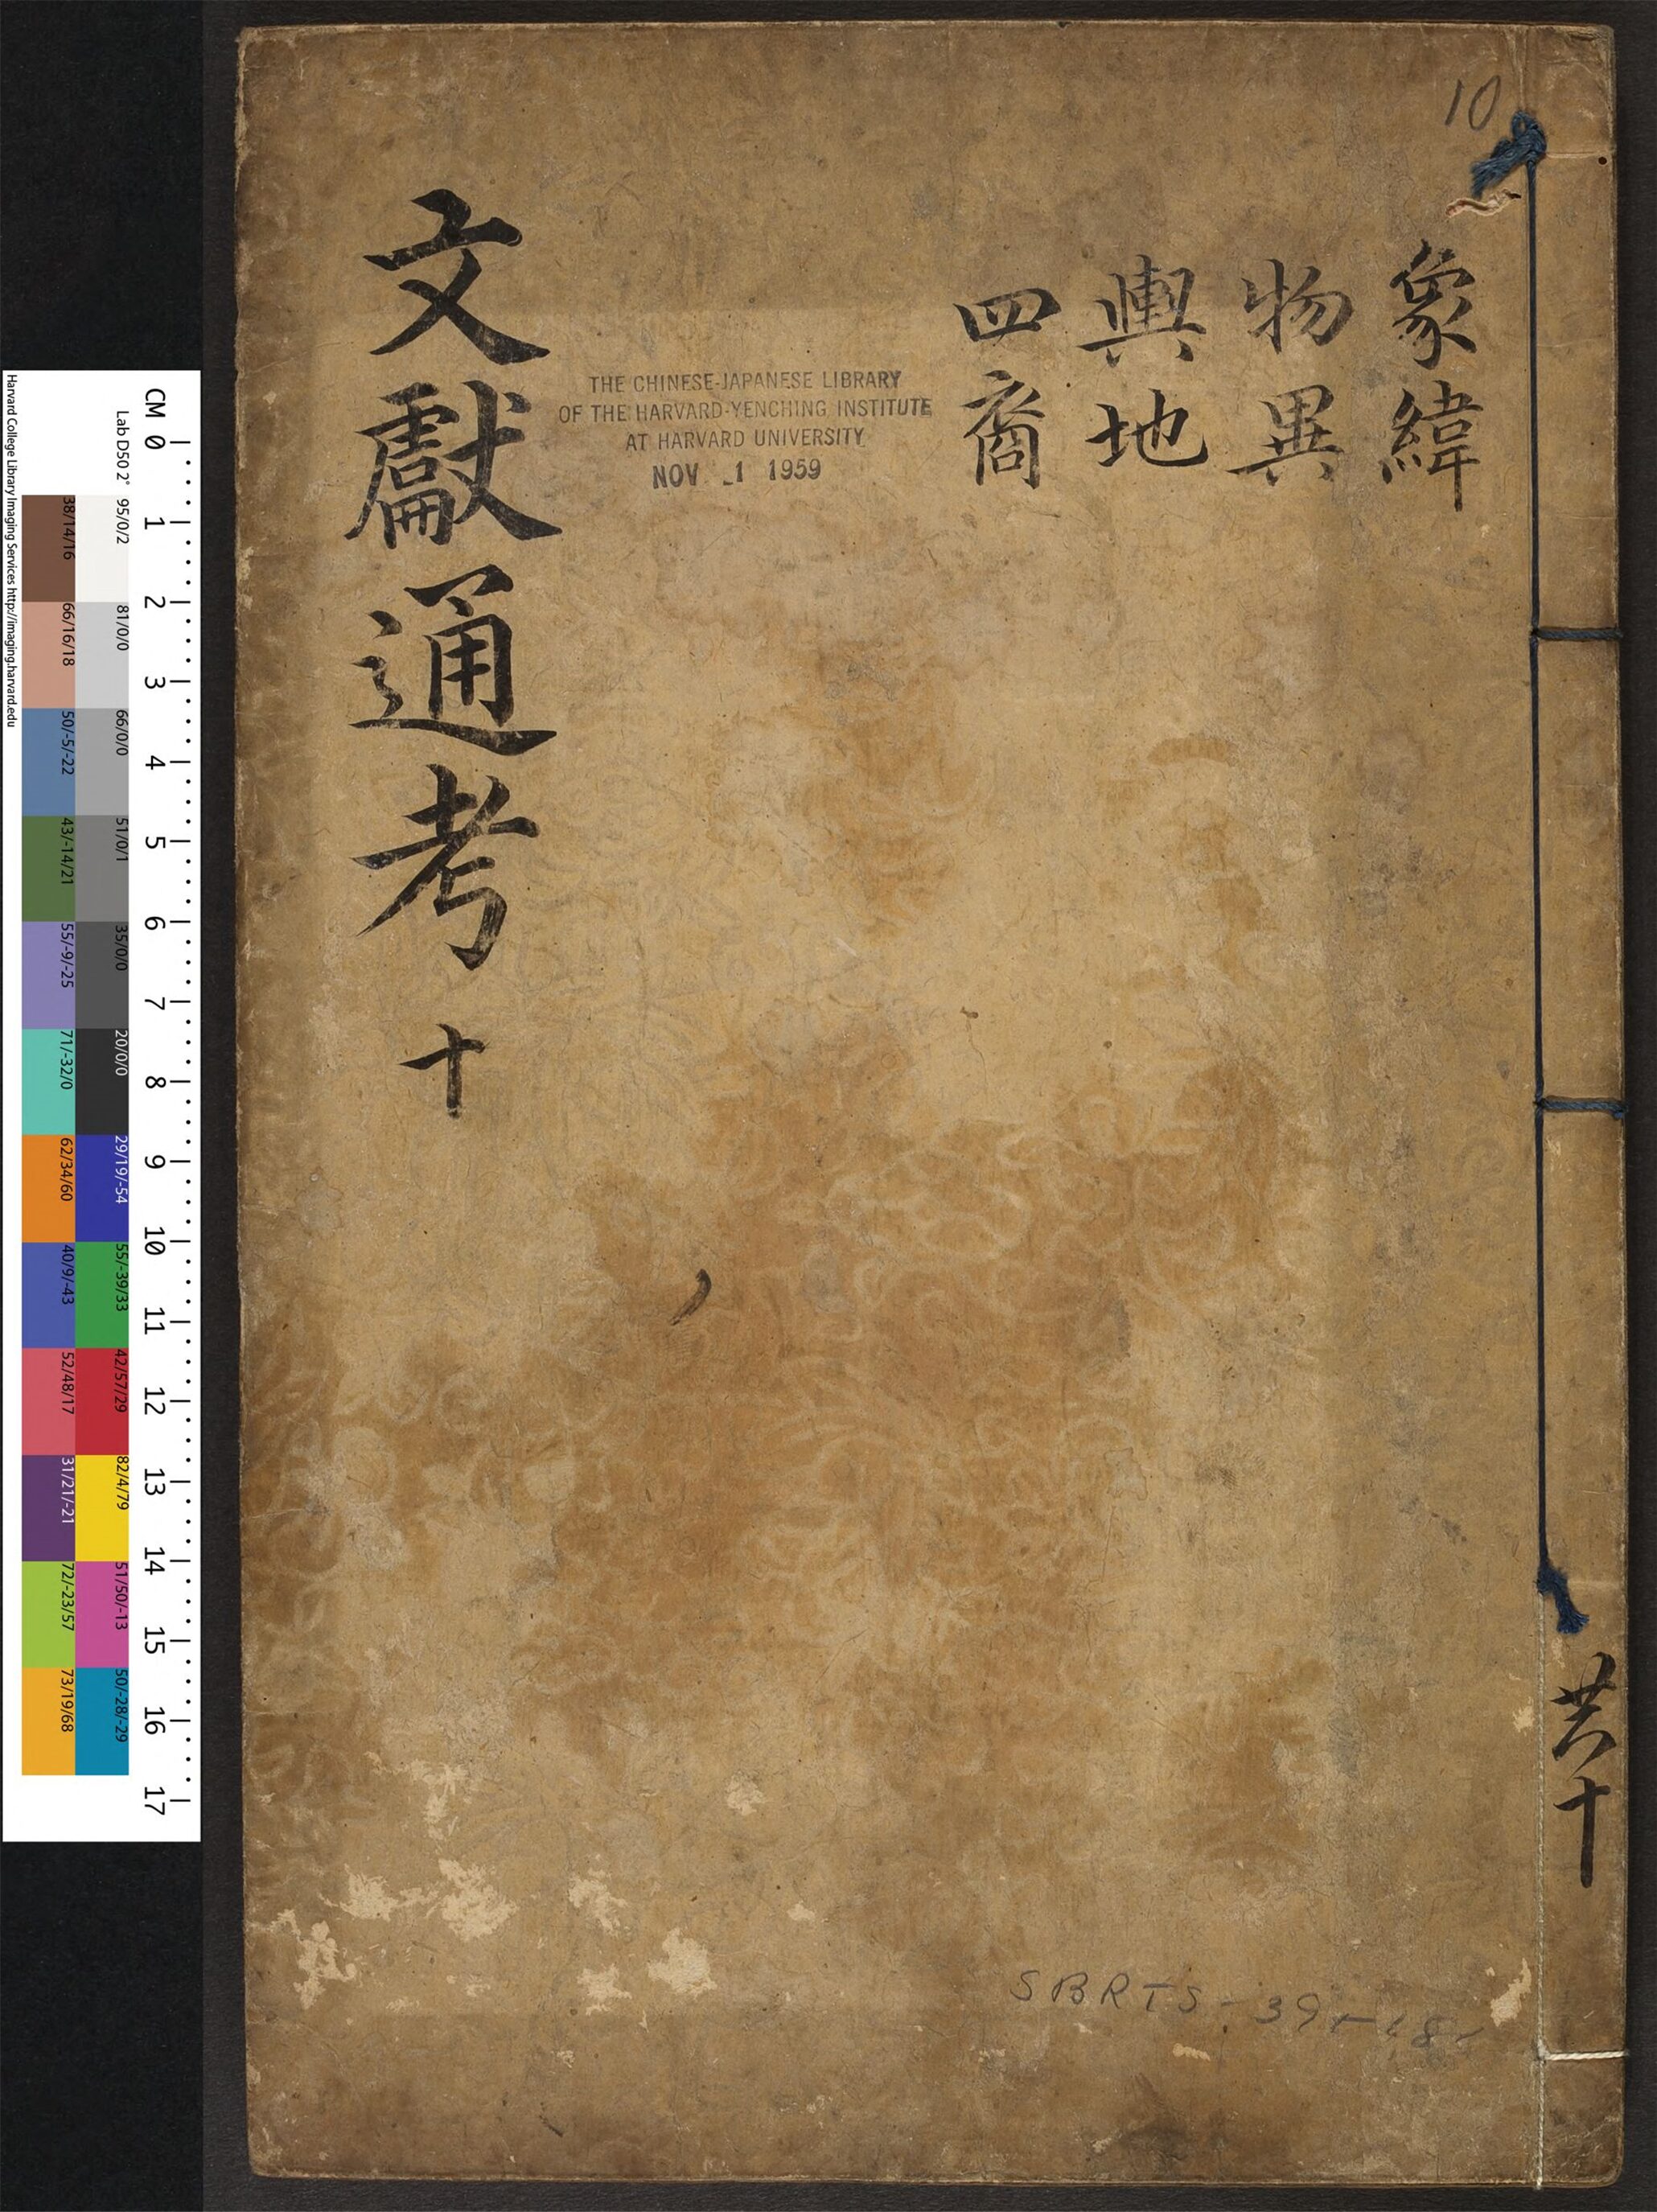 10
象緯
物異
輿地
四裔
文獻通考 十
THE CHINESE-JAPANESE LIBRARY
OF THE HARVARD-YENCHING INSTITUTE
AT HARVARD UNIVERSITY
NOV -1 1959
共十
SBRTS-39
Harvard College Library Imaging Services http://imaging.harvard.edu
Lab D50 2°
CM 0 1 2 3 4 5 6 7 8 9 10 11 12 13 14 15 16 17
95/0/2
81/0/0
66/0/0
51/0/1
35/0/0
20/0/0
29/19/-54
55/-39/33
42/57/29
82/4/79
51/50/-13
50/-28/-29
38/14/16
66/16/18
50/-5/-22
43/-14/21
55/-9/-25
71/-32/0
62/34/60
40/9/-43
52/48/17
31/21/-21
72/-23/57
73/19/68